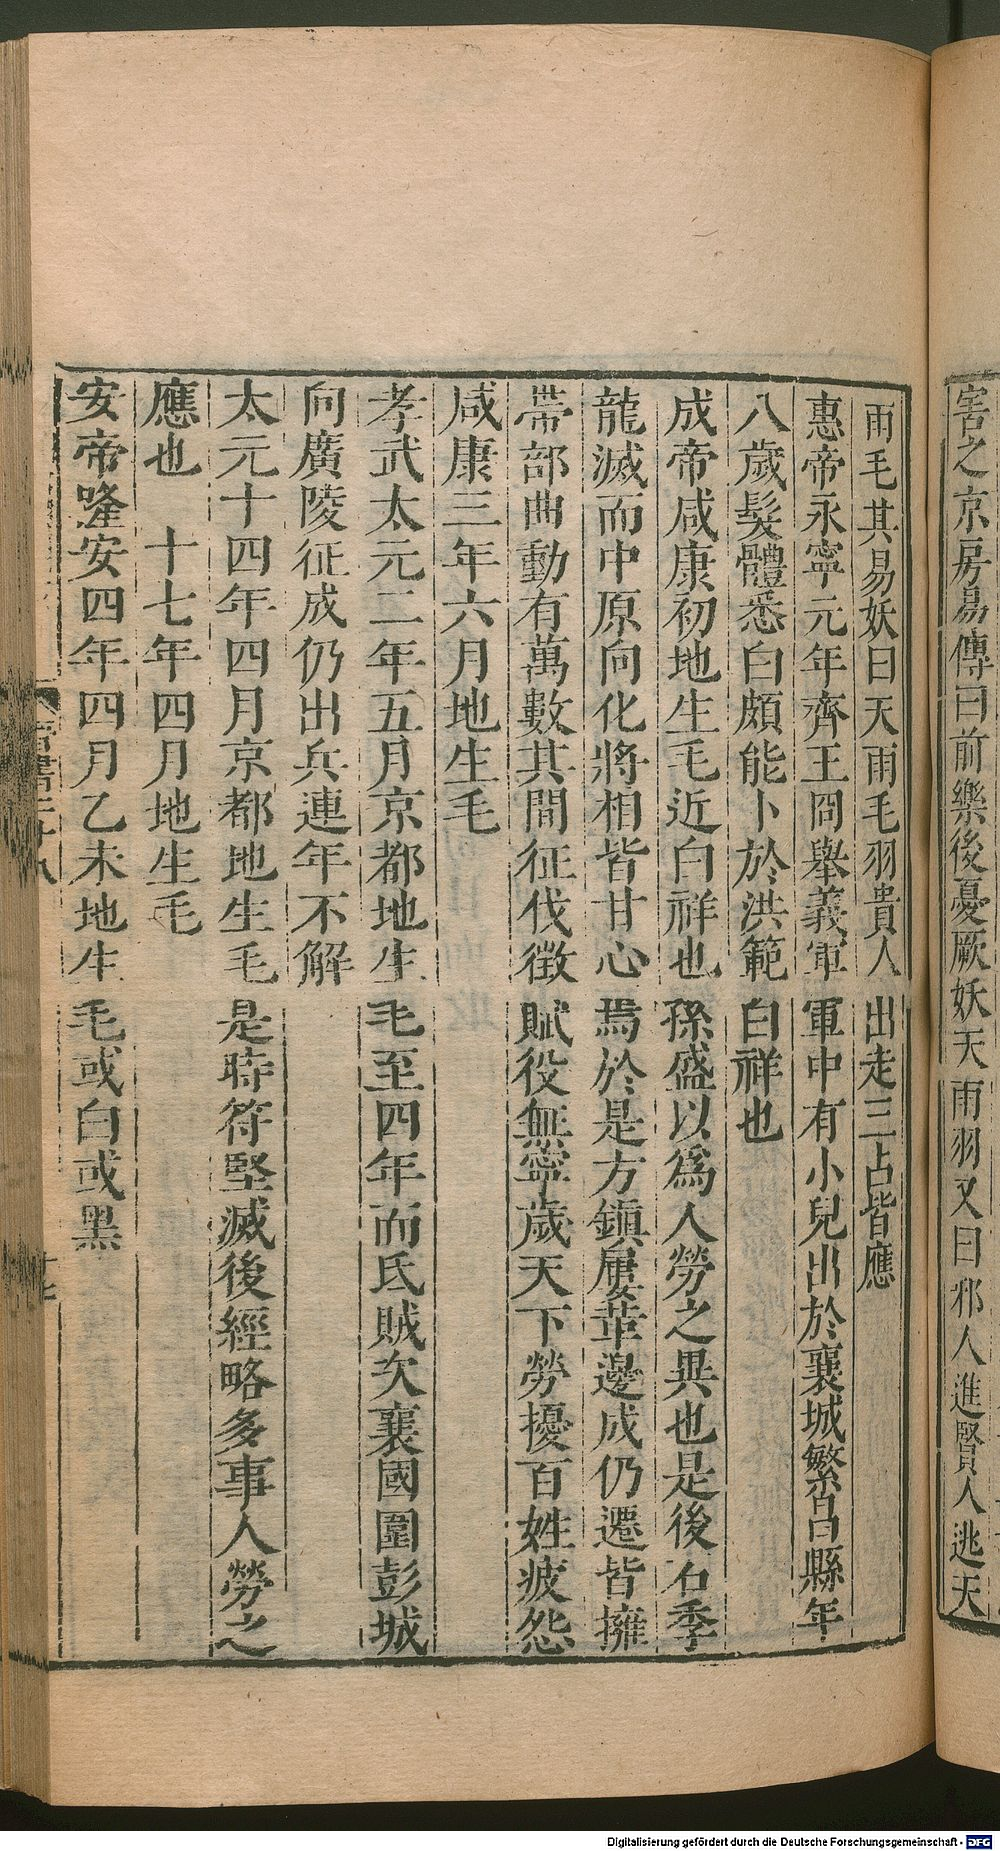 害之京房易傳曰前樂後憂厥妖天雨羽又曰邪人進賢人逃天
雨毛其易妖曰天雨毛羽貴人出走三占皆應
惠帝永寧元年齊王冏舉義軍軍中有小兒出於襄城繁昌縣年
八歲髮體悉白頗能卜於洪範白祥也
成帝咸康初地生毛近白祥也孫盛以爲人勞之異也是後石季
龍滅而中原向化將相皆甘心焉於是方鎮屢革邊戍仍遷皆擁
帶部曲動有萬數其間征伐徵賦役無寧歲天下勞擾百姓疲怨
咸康三年六月地生毛
孝武太元二年五月京都地生毛至四年而氐賊次襄國圍彭城
向廣陵征戍仍出兵連年不解
太元十四年四月京都地生毛是時符堅滅後經略多事人勞之
應也 十七年四月地生毛
安帝隆安四年四月乙未地生毛或白或黑
晉書二十八
十七
Digitalisierung gefördert durch die Deutsche Forschungsgemeinschaft - DFG